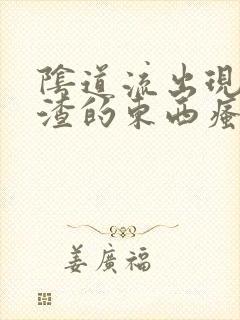 陰道流出現
渣的東西瘙
姜廣福